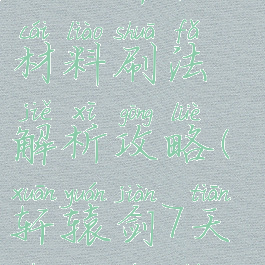 cái liào shuā fǎ
材料刷法
jiě xī gōng lüè
解析攻略(
xuān yuán jiàn tiān
轩辕剑7天